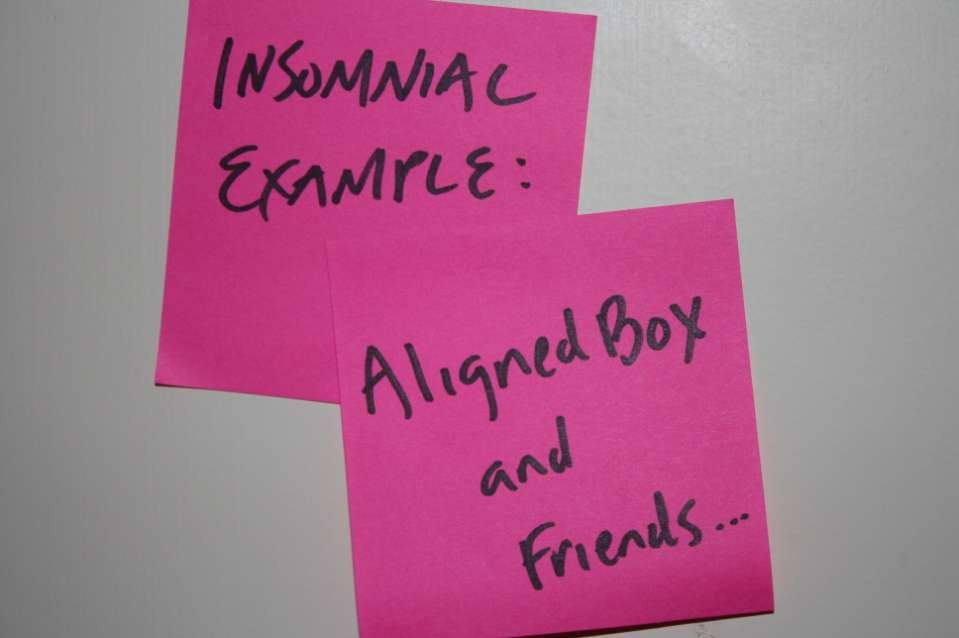 INSOMNIAC
EXAMPLE:
AlignedBox
and
Friends...